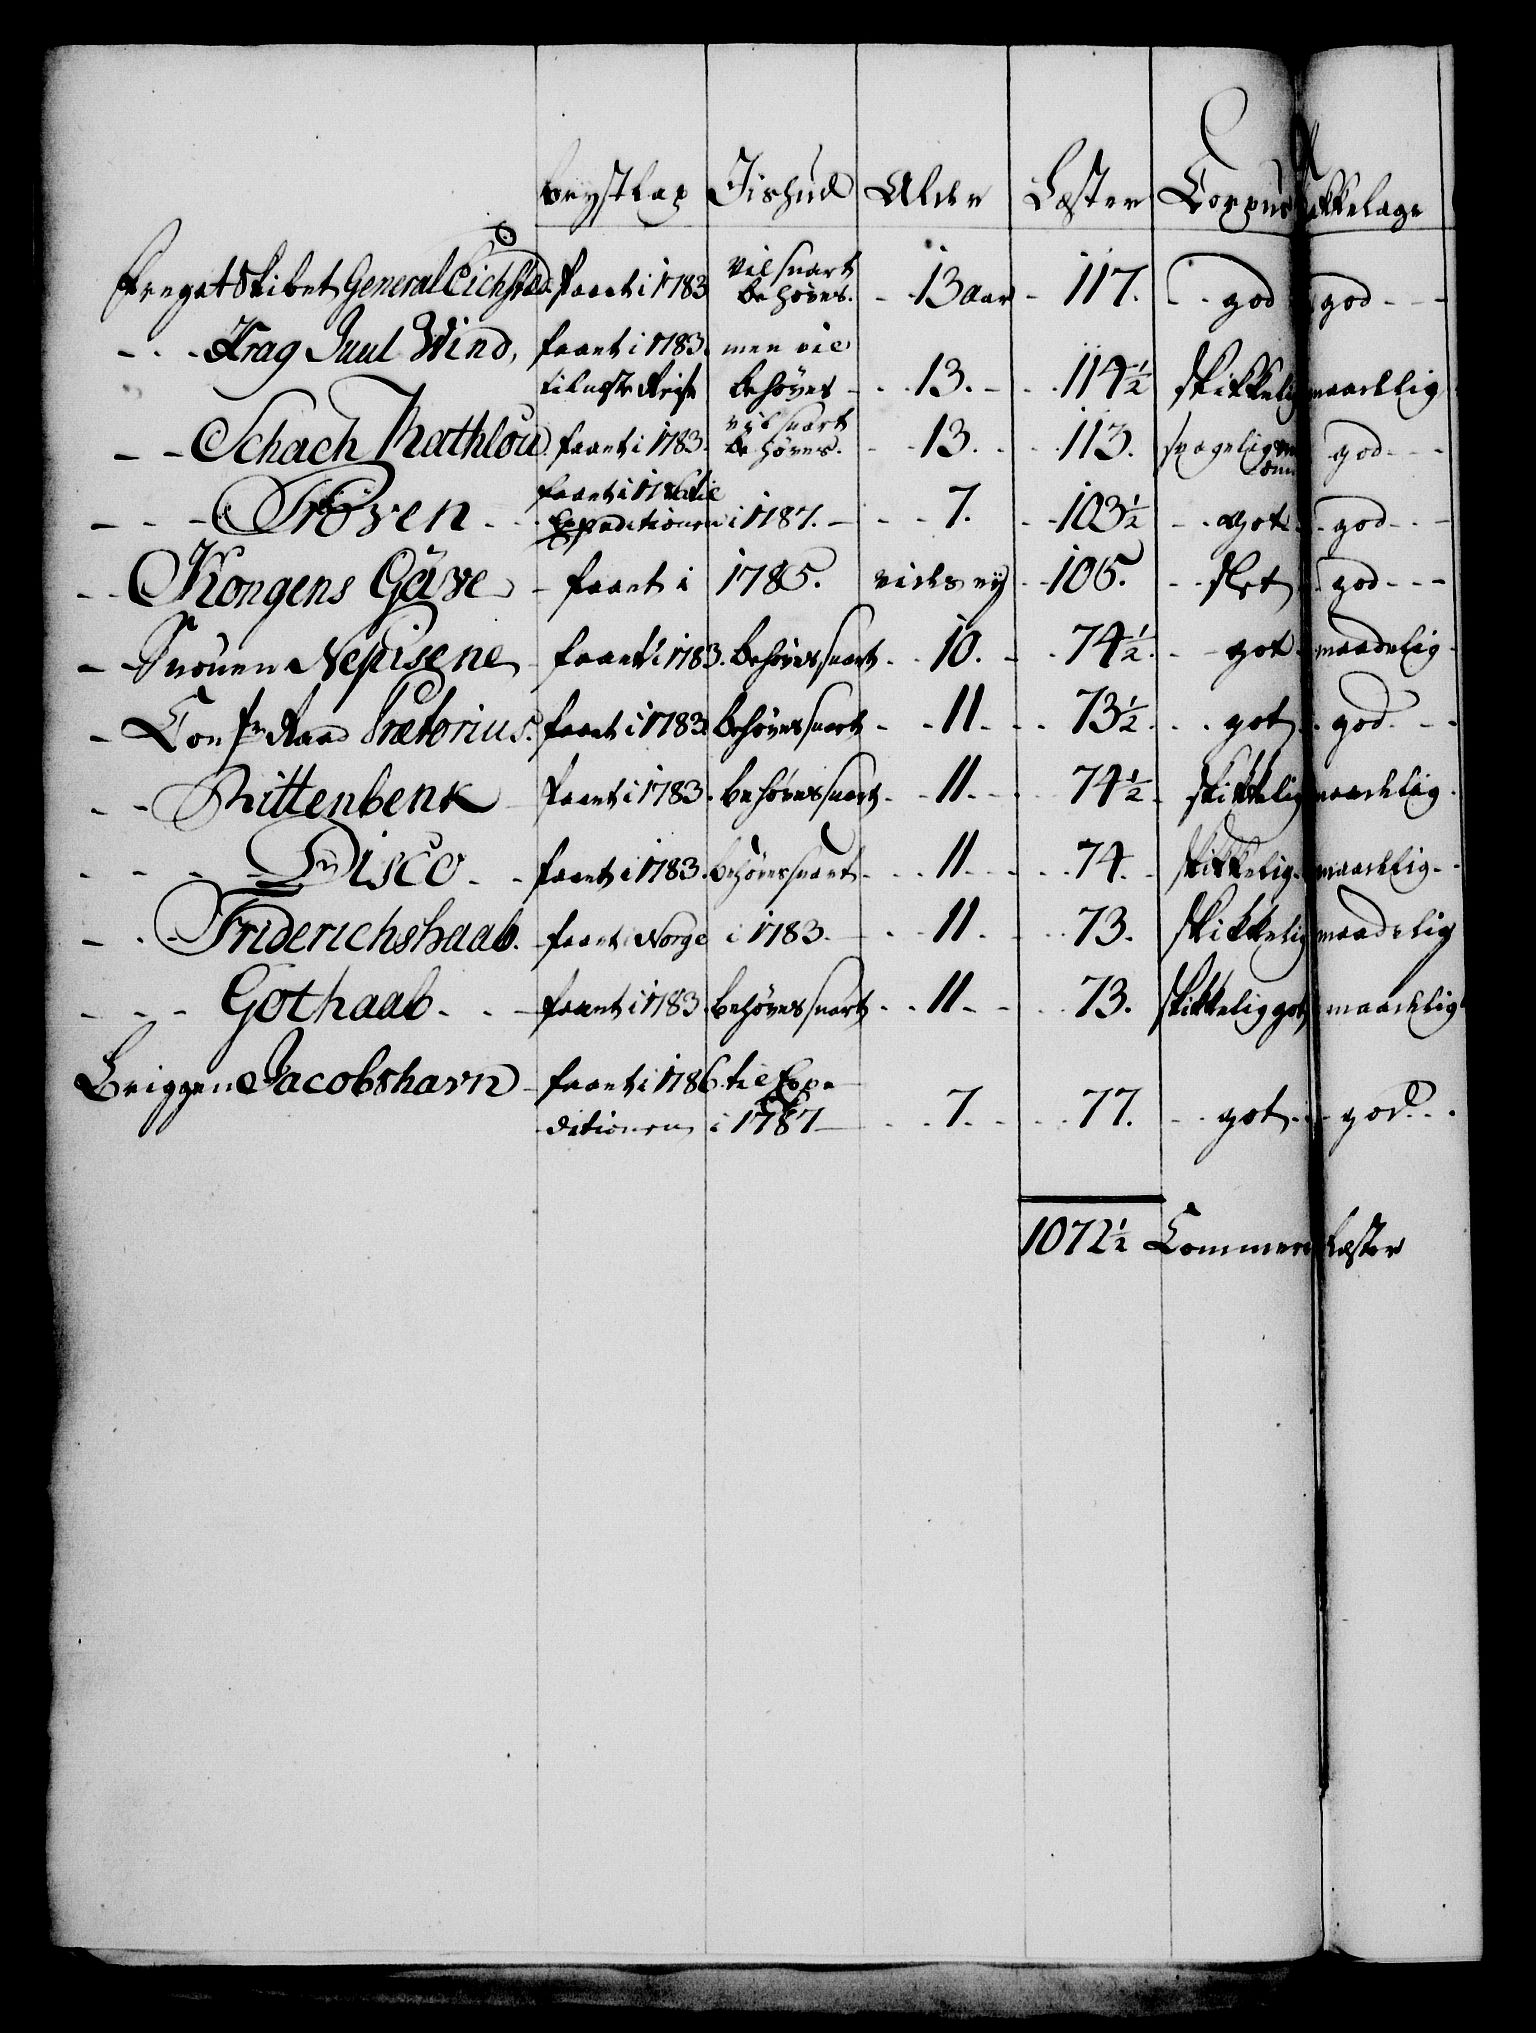 Brystlap Iishud Alder Læster Corpus Takkelage
Fregatskibet General Eichsted faaet i 1783 vil snart behøves. 13 aar 117. god god
Krag Juul Wind, faaet i 1783. men vil
til næste Reise behøves 13. 114½ skikkelig maadelig
Schach Rathlou faaet i 1783. vil snart behøves. 13. 113. god
Prøven faaet i 1786 til
Expeditionen i 1787. 7. 103½ got god
Kongens Gave faaet i 1785. ny 105. slet god
Snouen Nepisene faaet i 1783. behøves snart 10. 74½. got maadelig
Conf: Raad Prætorius. faaet i 1783. behøves snart 11. 73½. got god
Rittenbenk faaet i 1783. behøves snart 11. 74½. skikkelig maadelig.
Disco faaet i 1783. behøves snart 11. 74. skikkelig maadelig
Friderichshaab. faaet i Norge i 1783. 11. 73. skikkelig maadelig
Gothaab. faaet i 1783. behøves snart 11. 73. skikkelig got maadelig
Briggen Jacobshavn faaet i 1786. til Expe
ditionen i 1787 7. 77. got god.
1072½ Commerce Læster